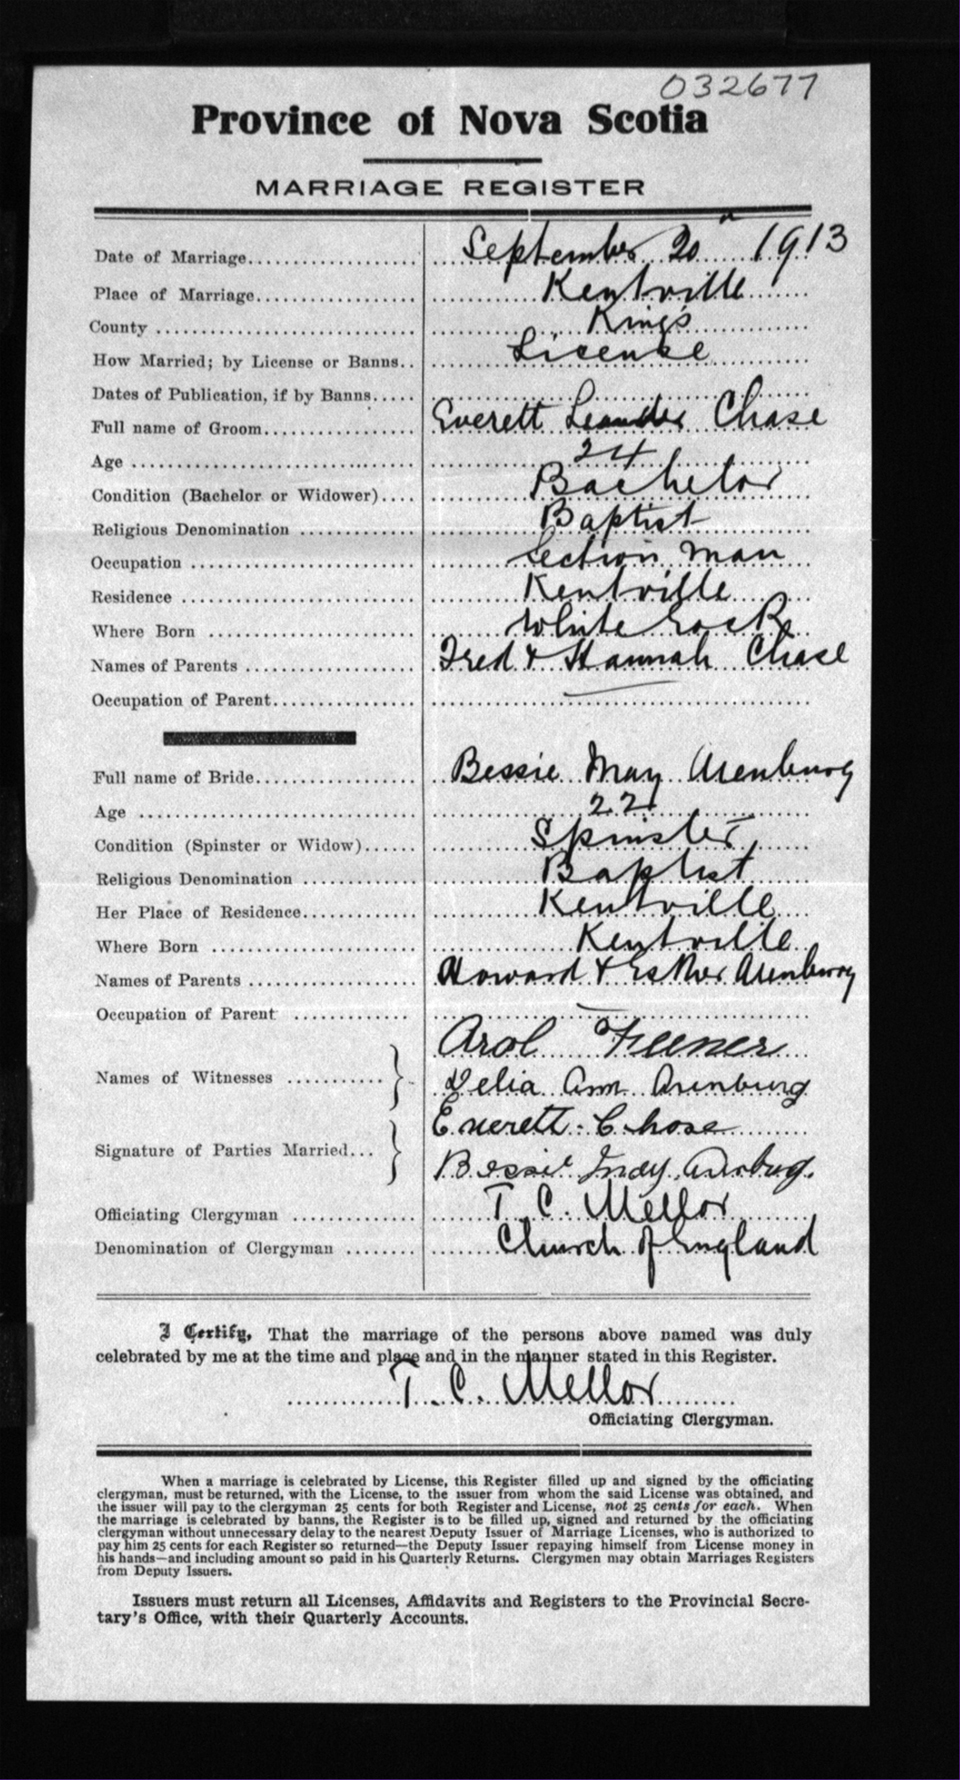 032677
Province of Nova Scotia
MARRIAGE REGISTER
Date of Marriage.................. September 20 1913
Place of Marriage................. Kentville
County ........................... Kings
How Married; by License or Banns.. License
Dates of Publication, if by Banns.....
Full name of Groom................. Everett Leander Chase
Age .............................. 24
Condition (Bachelor or Widower).... Bachelor
Religious Denomination ............ Baptist
Occupation ........................ Section Man
Residence ......................... Kentville
Where Born ........................ White Rock
Names of Parents .................. Fred & Hannah Chase
Occupation of Parent................ —
Full name of Bride.................. Bessie May Arenburg
Age ............................... 22
Condition (Spinster or Widow)...... Spinster
Religious Denomination ............ Baptist
Her Place of Residence............. Kentville
Where Born ........................ Kentville
Names of Parents .................. Howard & Esther Arenburg
Occupation of Parent ............. —
Arol Feener
Names of Witnesses ............ }
Delia Ann Arenburg
Everett Chase
Signature of Parties Married... }
Bessie May
Officiating Clergyman ............. T. C. Mellor
Denomination of Clergyman ........ Church of England
I Certify, That the marriage of the persons above named was duly
celebrated by me at the time and place and in the manner stated in this Register.
T. C. Mellor
Officiating Clergyman.
When a marriage is celebrated by License, this Register filled up and signed by the officiating
clergyman, must be returned, with the License, to the issuer from whom the said License was obtained, and
the issuer will pay to the clergyman 25 cents for both Register and License, not 25 cents for each. When
the marriage is celebrated by banns, the Register is to be filled up, signed and returned by the officiating
clergyman without unnecessary delay to the nearest Deputy Issuer of Marriage Licenses, who is authorized to
pay him 25 cents for each Register so returned—the Deputy Issuer repaying himself from License money in
his hands—and including amount so paid in his Quarterly Returns. Clergymen may obtain Marriages Registers
from Deputy Issuers.
Issuers must return all Licenses, Affidavits and Registers to the Provincial Secre-
tary's Office, with their Quarterly Accounts.